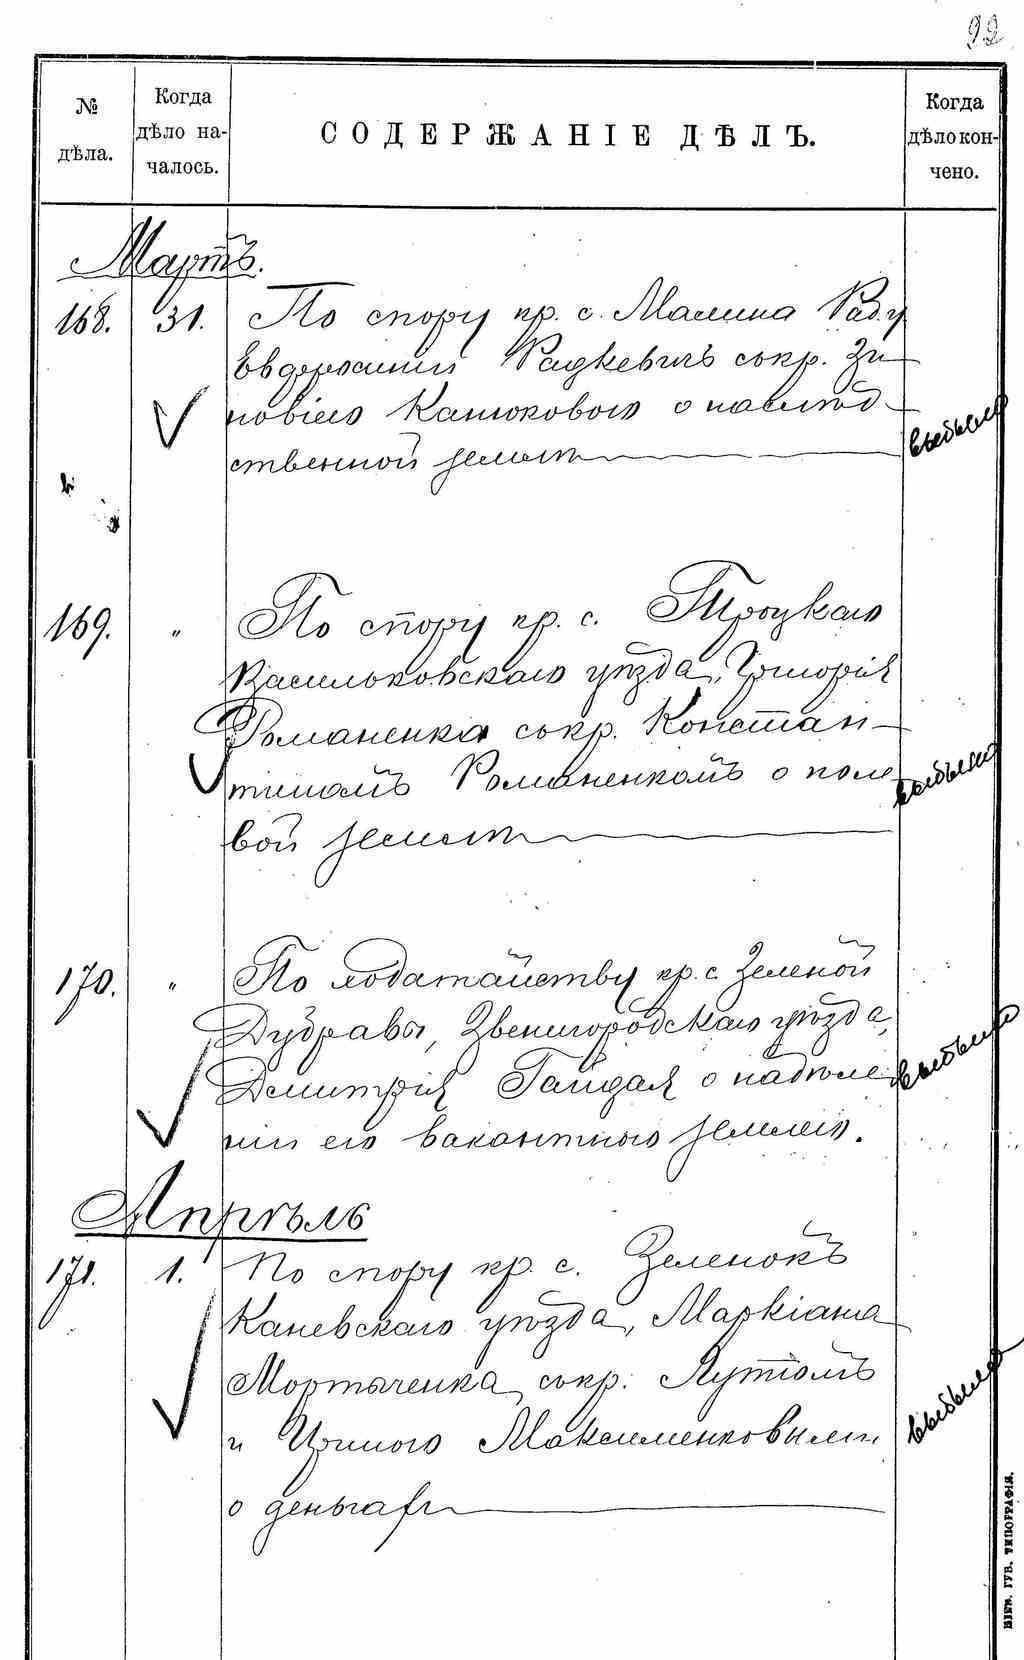 92
№ дѣла.
Когда дѣло на-
чалось.
СОДЕРЖАНІЕ ДѢЛЪ.
Когда дѣло кон-
чено.
Мартъ.
168. 31. По спору кр. с. Малина Рад. у
Евфросиніи Радкевичъ съ кр. Зи-
новіею Канюковою о наслѣд-
ственной землѣ выбыло
169. " По спору кр. с. Троцкаго
Васильковскаго уѣзда, Григорія
Романенка съ кр. Констан-
тиномъ Романенкомъ о поле
вой землѣ выбыло
170. " По ходатайству кр. с. Зеленой
Дубравы, Звенигородскаго уѣзда,
Дмитрія Гайдая о надѣле
ніи его вакантною землею. выбыло
Апрѣль
171. 1. По спору кр. с. Зеленокъ
Каневскаго уѣзда, Маркіана
съ кр.
и Максименковыми
о деньгахъ выбыло
КІЕВ. ГУБ. ТИПОГРАФІЯ.